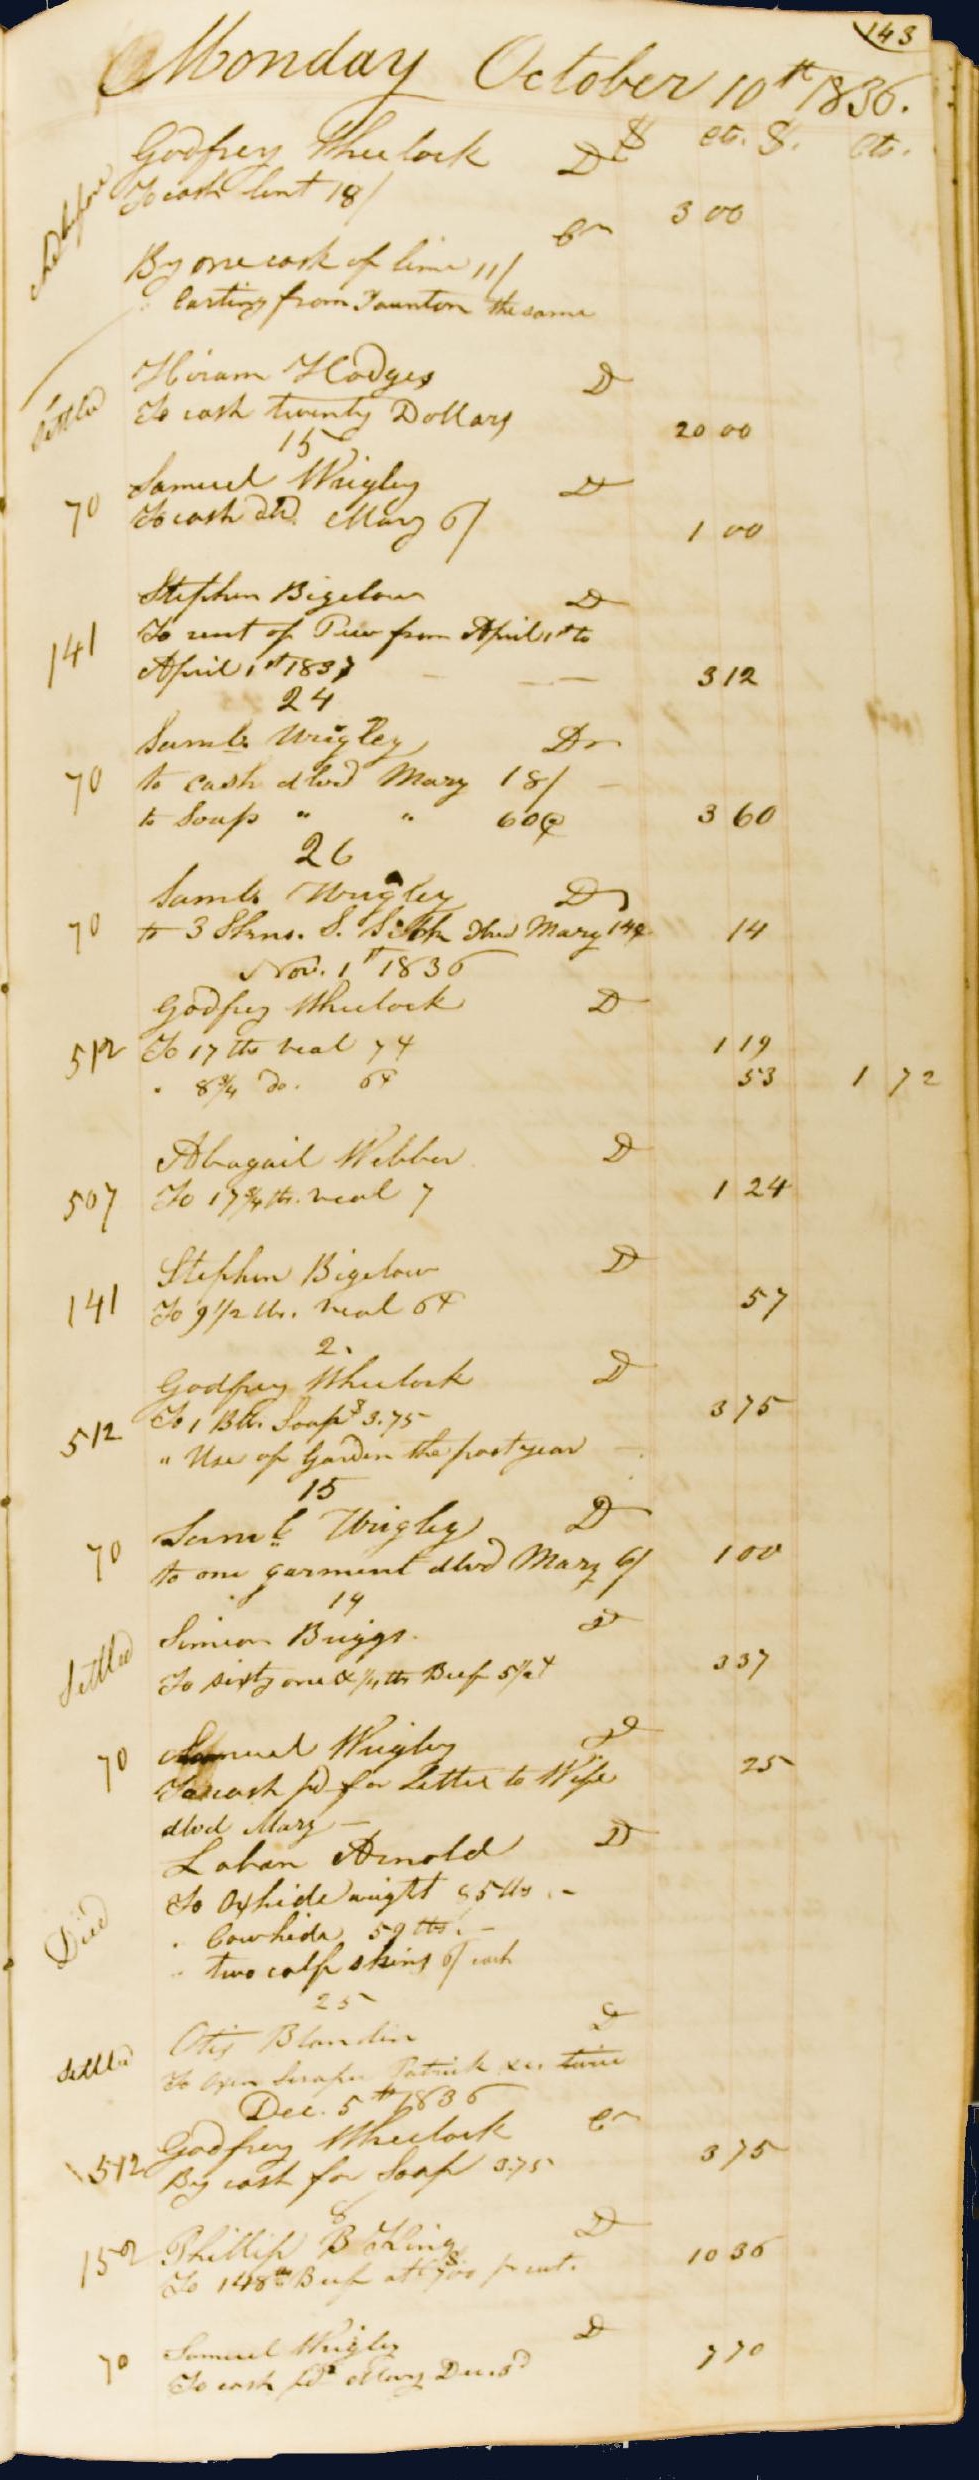 143
Monday October 10th 1836.
$ cts. $. cts.
Godfrey Wheelock Dr
To cash lent 18/ 3 00
Cr
By one cask of lime 11/
" Carting from Taunton the same
Settled Hiram Hodges D
To cash twenty Dollars 20 00
15
70 Samuel Wrigley D
To cash dld. Mary 6/ 1 00
141 Stephen Bigelow D
To rent of Pew from April 1st to
April 1st 1837 3 12
24
70 Saml. Wrigley Dr
to Cash dlvd Mary 18/
to Soap " " 60¢ 3 60
26
70 Saml. Wrigley Dr
to 3 Skns. S. Silk dlvd Mary 14¢ 14
Nov. 1st 1836
512 Godfrey Wheelock D
To 17 lbs veal 7¢ 1 19
" 8 3/4 do. 6¢ 53 1 72
507 Abagail Webber D
To 17 3/4 lb. veal 7 1 24
141 Stephen Bigelow D
To 9 1/2 lbs. veal 6¢ 57
2.
512 Godfrey Wheelock D
To 1 Bbl. Soap $3.75 3 75
" Use of Garden the past year
15
70 Saml. Wrigley D
to one garment dlvd Mary 6/ 1 00
19
Settled Simeon Briggs. D
To sixty one & 1/4 lbs Beef 5 1/2¢ 3 37
70 Samuel Wrigley D
To cash pd for Letter to Wife 25
dlvd Mary
Died Laban Arnold D
To Oxhide weight 85 lbs.
" Cowhide 59 lbs.
" two calf skins 6/ each
25
Settled Otis Blandin D
To Oxen Scraper Patrick twice
Dec. 5th 1836
512 Godfrey Wheelock Cr
By cash for Soap 3.75 3 75
8
152 Phillip B King D
To 148 lb Beef at $7.00 pr cut. 10 36
70 Samuel Wrigley D
To cash pd Mary Dec. 3d 7 70